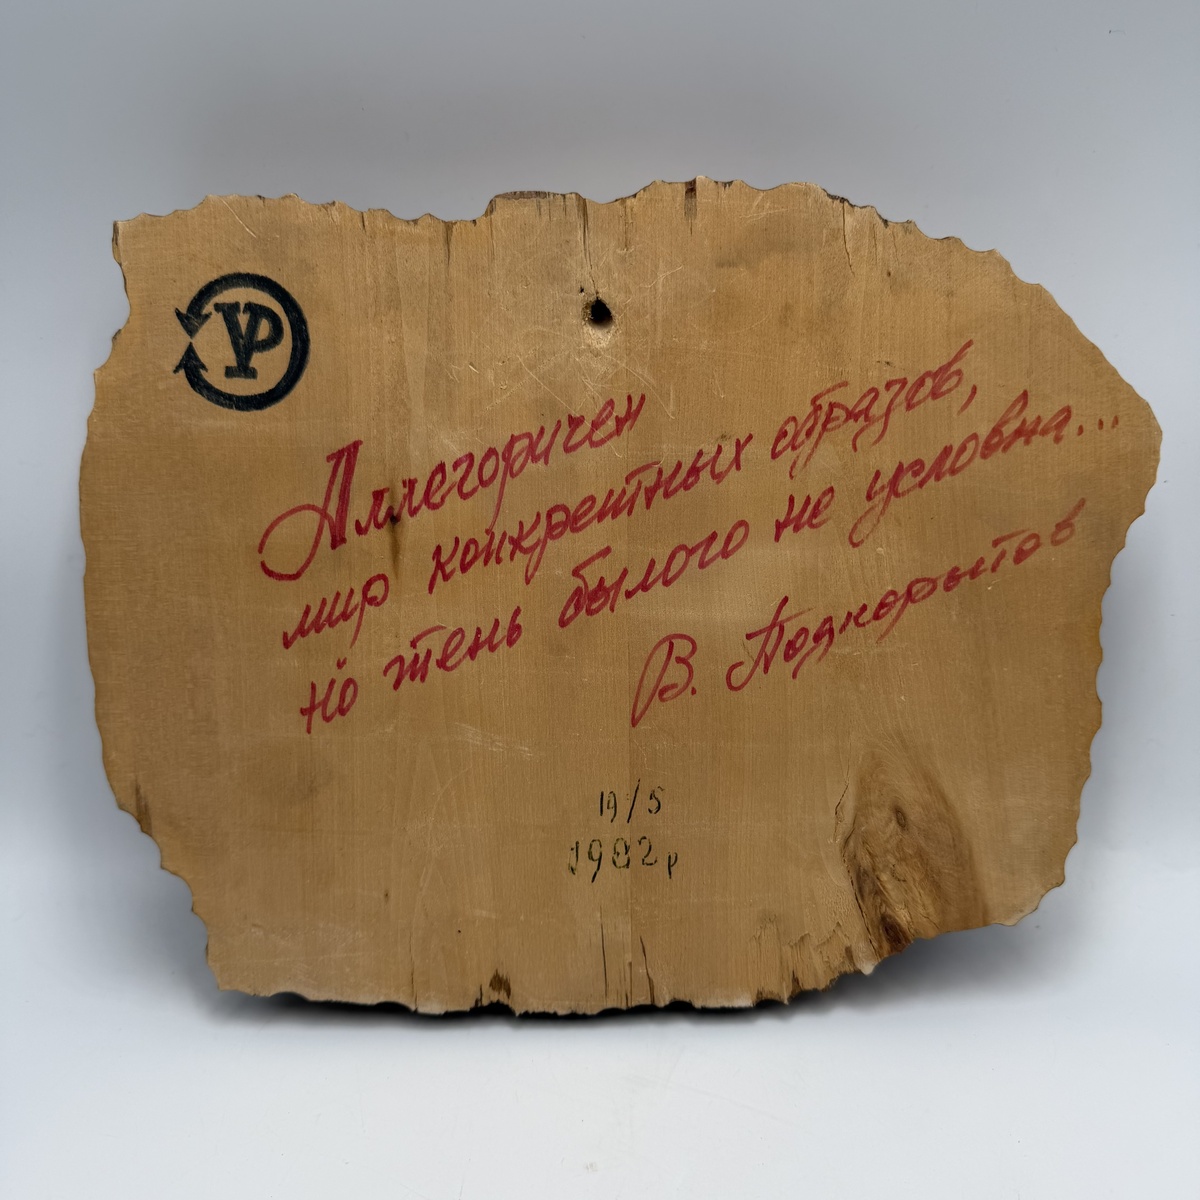 УР
Аллегоричен
мир конкретных образов,
но тень былого не условна...
В. Подкорытов
19/5
1982 р